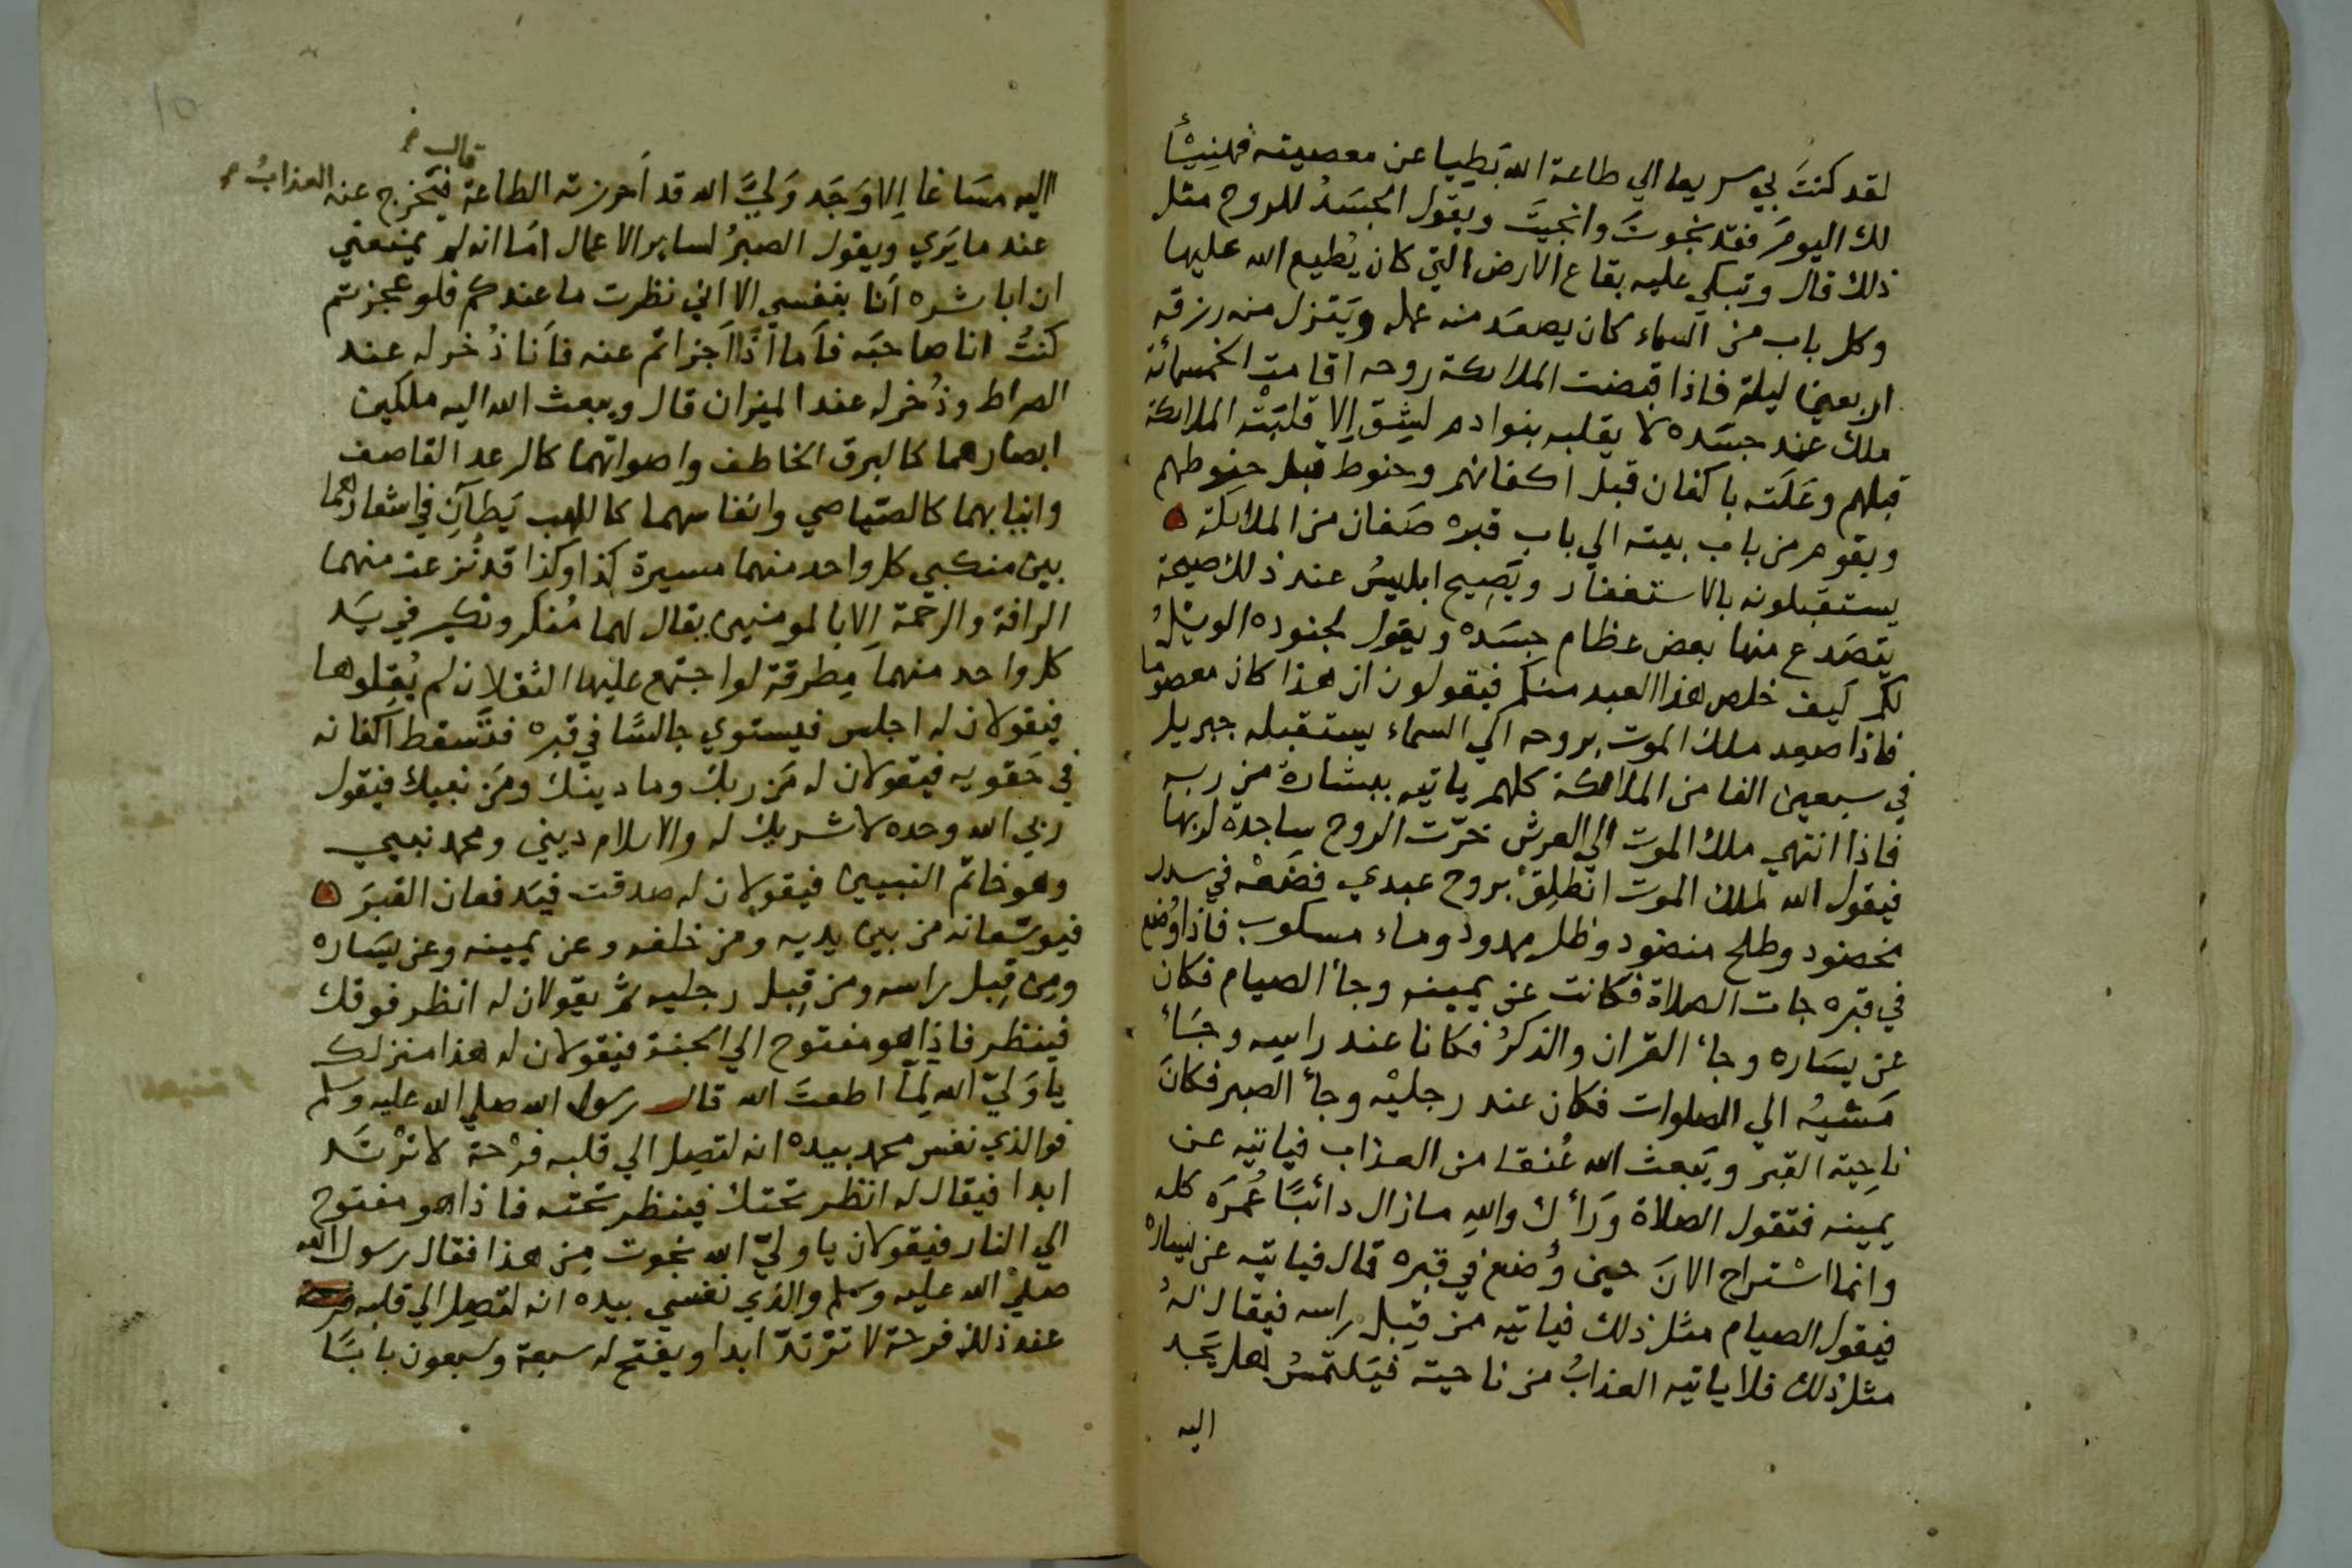 لقد كنتَ بي سريعا الي طاعة الله بَطِيا عن معصيته فهنِيْئًا
لك اليومَ فقد نجوتَ وانجيتَ ويقول الجسَدُ للروح مثل
ذلك قال وتبكي عليه بقاع الارض التي كان يُطيع الله عليها
وكل باب من السماء كان يصعَد منه عمله ويَنزل منه رزقه
اربعين ليلة فاذا قبضت الملائكة روحه اقامت الخمسمائة
ملك عند جسَده لا يقلبه بنوا ادم لِشِق اِلا قلبَتْه الملائكة
قبلهم وعَلَته باكفان قبل اكفانهم وحنوط قبل حنوطهم
ويقوم من باب بيته الي باب قبره صَفان من الملائكة ه
يستقبلونه بالاستغفار ويَصِيح ابليسُ عند ذلك صيحة
يتصَدع منها بعض عظام جسَده ويقول لجنوده الويْلُ
لكم كَيف خلص هذا العبد منكم فيقولون ان هذا كان معصوما
فاذا صعد ملك الموت بروحه الي السماء يستقبله جبريل
في سبعين الفا من الملائكة كلهم ياتيه ببشارة من ربه
فاذا انتهي ملك الموت الي العرش خرّت الروح ساجدة لربها
فيقول الله لملك الموت انطلِقْ بروح عبدي فضَعْه في سدر
مخضود وطلح منضود وظل ممدود وماء مسكوب فاذا وُضع
في قبره جات الصلاة فكانت عن يمينه وجأ الصيام فكان
عن يسَاره وجاء القران والذكرُ فكانا عند راسه وجَاء
مَشيُه الي الصلوات فكان عند رجليْه وجأ الصبر فكانَ
ناحِية القبر ويَبعث الله عُنقا من العذاب فياتيه عن
يمينه فتقول الصلاة وَرَاءك واللهِ مازال دائبًا عُمرَه كله
وانما اسْتراح الانَ حين وُضع في قبره قال فياتيه عن يساره
فيقول الصيام مثل ذلك فياتيه من قِبل راسه فيقال لهُ
مثل ذلك فلا ياتيه العذابُ من ناحية فيَلتمسُ هل يَجد
اليه
قال خ
اليه مسَاغا اِلا وَجَد وَليَّ الله قد اَحرزته الطاعة فيَخرج عنه العذابُ
عند ما يَري ويقول الصبرُ لسائر الاعمال امَا انه لم يمنعني
ان اباشره اَنا بنفسي الا اني نظرت ما عندكم فلو عجزتم
كنتُ انا صاحبَه فاَما اذًا اَجزاتم عنه فاَنا ذُخر له عند
الصراط وذُخر له عند الميزان قال ويبعث الله اليه ملكين
ابصارهما كالبرق الخاطف واصواتهما كالرعد القاصف
وانيابهما كالصَياصي وانفاسهما كاللهب يَطاَن في اشعارهما
بين منكبي كل واحد منهما مسيرة كذا وكذا قد نُزعت منهما
الرافة والرحمة اِلا بالمومنين يقال لهما مُنكر ونكير في يَد
كل واحد منهما مِطرقة لو اجتمع عليها الثقلان لم يُقِلوها
فيقولان له اجلس فيستوي جالسًا في قبره فتَسقط اَكفانه
في حَقويه فيقولان له مَن ربك وما دينك ومَن نبيك فيقول
ربي الله وحده لا شريك له والاسلام ديني ومحمد نبيي
وهو خاتم النبيين فيقولان له صدقت فيَدفعان القبرَ ه
فيوسّعانه من بين يديه ومن خلفه وعن يمينه وعن يسَاره
ومِن قِبل راسه ومن قِبل رجليه ثمَّ يقولان له انظر فوقك
فينظر فاذا هو مفتوح الي الجنة فيقولان له هذا منزلك
يا وَليّ الله لِمَا اطعتَ الله قال رسول الله صلي الله عليه وسلم
فوالذي نفس محمد بيده انه لتصِل الي قلبه فرْحة لا ترْتَد
ابدا فيقال له انظر تحتك فينظر تحته فاذا هو مفتوح
الي النار فيقولان يا وليّ الله نجوت مِن هذا فقال رسول الله
صليْ الله عليه وسلم والذي نفسي بيده انه لتصِل الي قلبه فرحة
عند ذلك فرحة لا ترْتدّ ابدا ويفتح له سبعة وسبعون بابًا